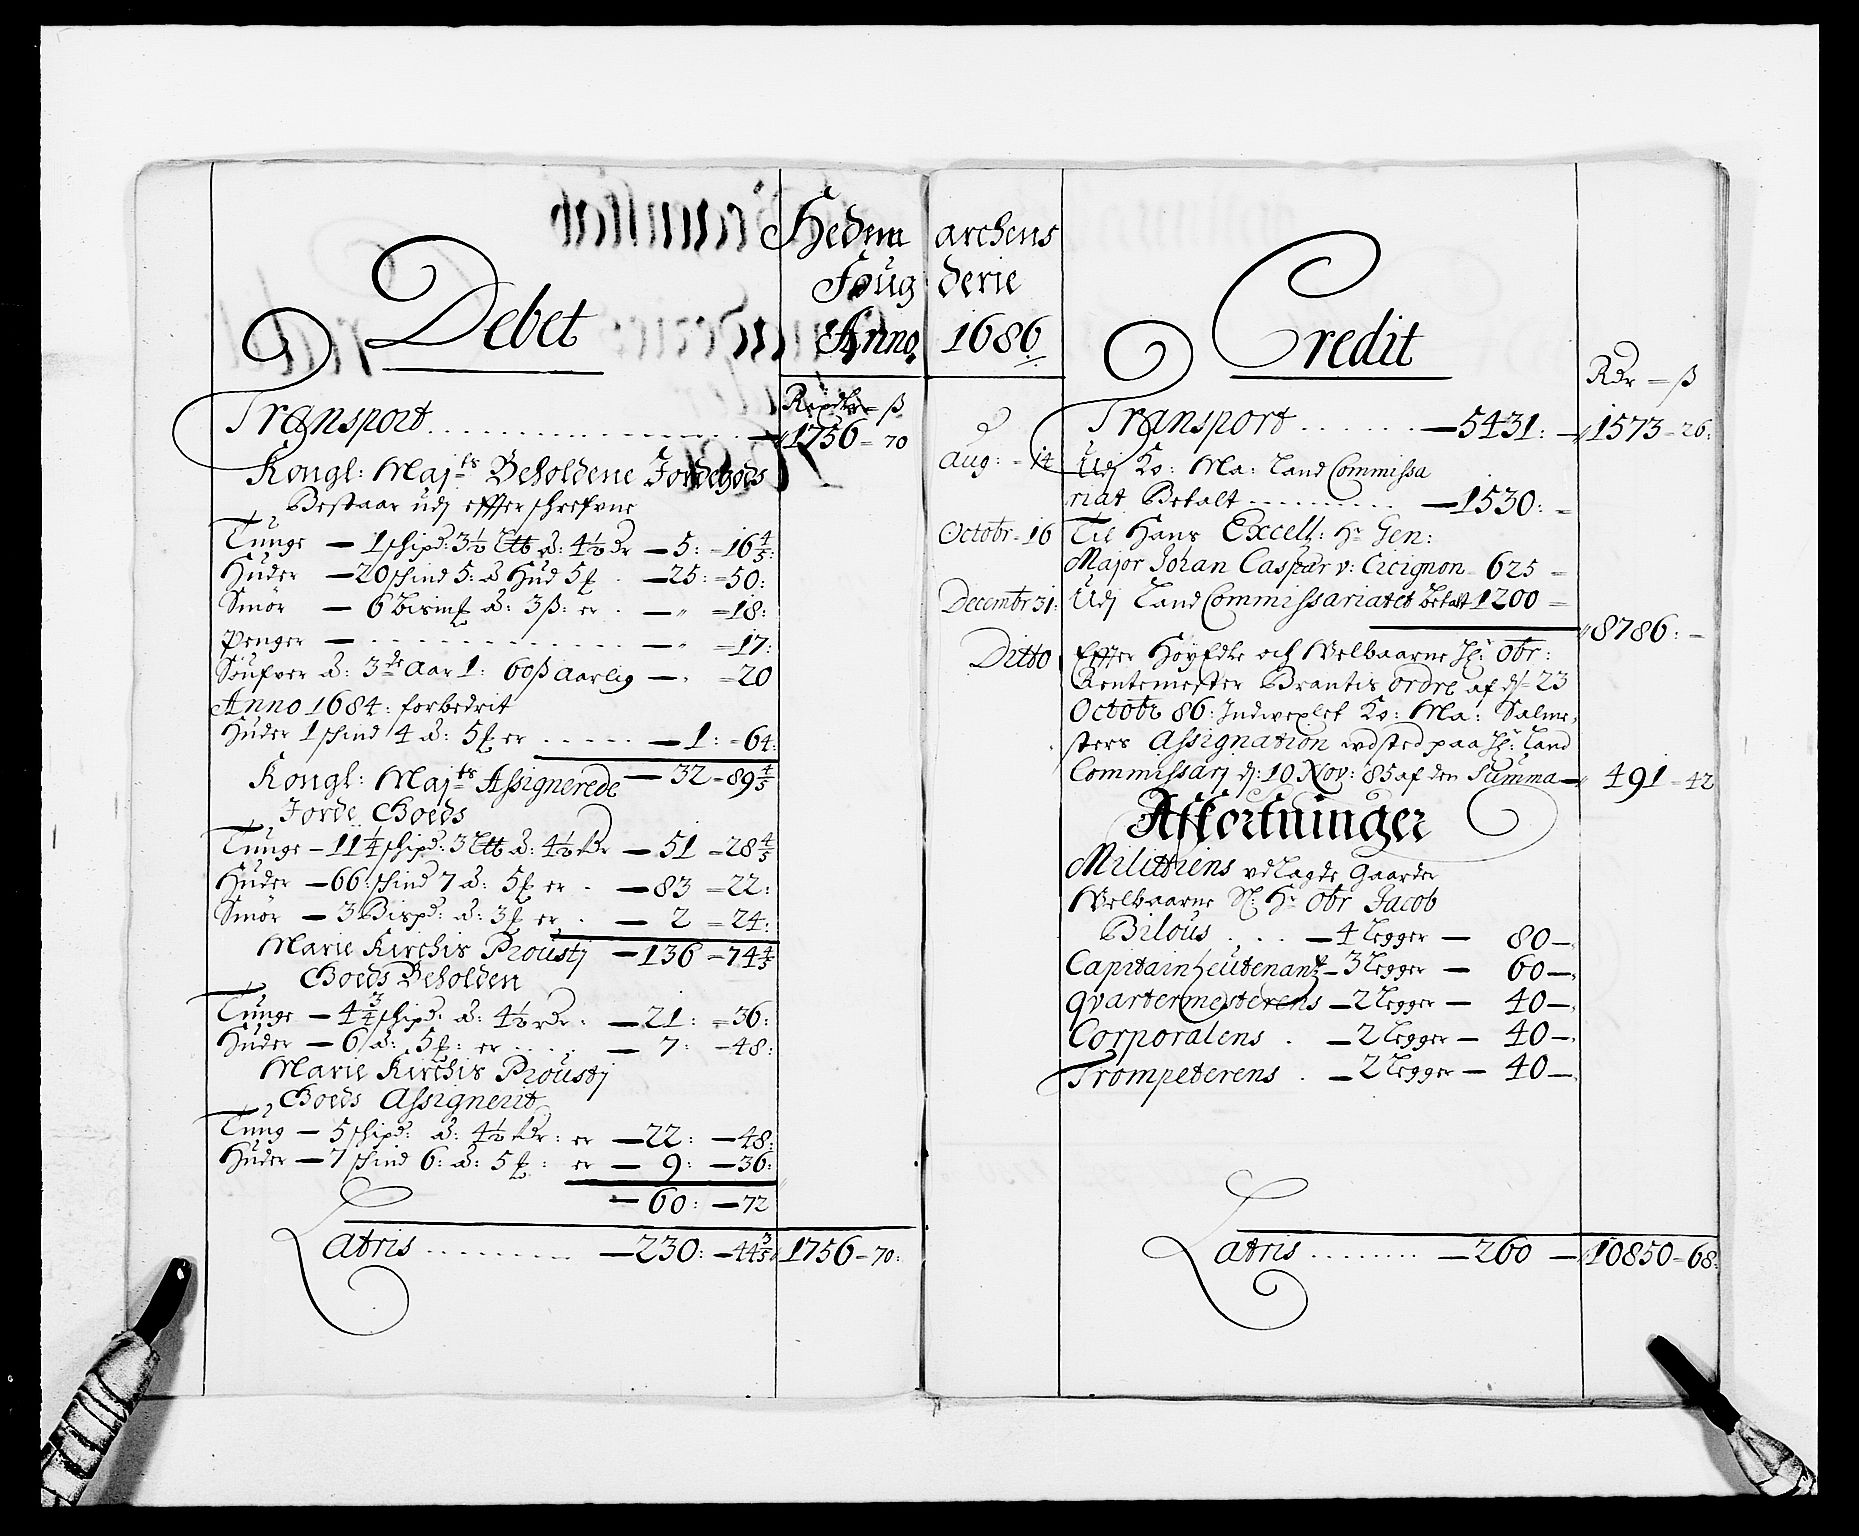 Hedm archens
Foug derie
Anno 1686
Debet
Rixdlr = ß
Transport — 1756 = 70
Kongl: Majts Beholdene Jordegods
Bestaar udj effterschrefvne
Tunge — 1 schpd: 3½ Ltb à: 4½ Rdr — 5: = 16 4/5:
Huder — 20 schind 5: à Hud 5 — 25: = 50:
Smör — 6 Bismk à: 3 ß: er — " = 18:
Penger — — " = 17:
Söufver à: 3de Aar 1: 60 ß aarlig — = 20
Anno 1684: forbedrit
Huder 1 schind 4 à: 5 er — 1: = 64:
— 32 = 89 4/5
Kongl: Majts Assignerede
Jorde Goeds
Tunge — 11¼ schpd: 3 Ltb à: 4½ Rdr — 51 = 28 4/5
Huder — 66: schind 7 à: 5 er — 83 = 22:
Smör — 3 Bispd: à: 3 er — 2 = 24:
— 136 = 74 4/5
Marie Kirchis Proustj
Goeds Beholden
Tunge — 4¾ schpd: à: 4½ rdr: — 21: = 36:
Huder — 6 à: 5: er — 7: — 48:
Marie Kirchis Proustj
Goeds Assignerit
Tung — 5 schpd: à: 4½ Rdr: er — 22: — 48:
Huder — 7 schind 6: à: 5: er — 9: — 36:
— 60: — 72
Latris — 230: — 44 3/5 1756 = 70:
Credit
Rdr = ß
Transport — 5431: — 1573 = 26:
Aug: = 14 Udj Ko: Ma: Land Commissa
riat Betalt — 1530: =
Octobr = 16 Til Hans Excell: Hr Gen:
Major Johan Caspar v: Cicignon 625 =
Decembr 31: Udj Land Commissariatet betalt 1200 =
8786: —
Ditto Effter Höyedle och Velbaarne Hr: Obr:
Rentemester Brantis ordre af dj 23
Octobr 86: Indvexlet Ko: Ma: Salme
sters Assignation udsted paa Hr: Land
Commissarj dj: 10 Nov: 85 af den Summa — 491 = 42
Affkortninger
Militiens udlagde Gaarder
Velbaarne Hr Obr Jacob
Bilous — 4 Legger — 80 —
Capitain Leutenant — 3 Legger — 60 —
Qvartermesterens — 2 Legger — 40 —
Corporalens — 2 Legger — 40 —
Trompeterens — 2 Legger — 40 —
Latris — 260 — 10850 = 68: